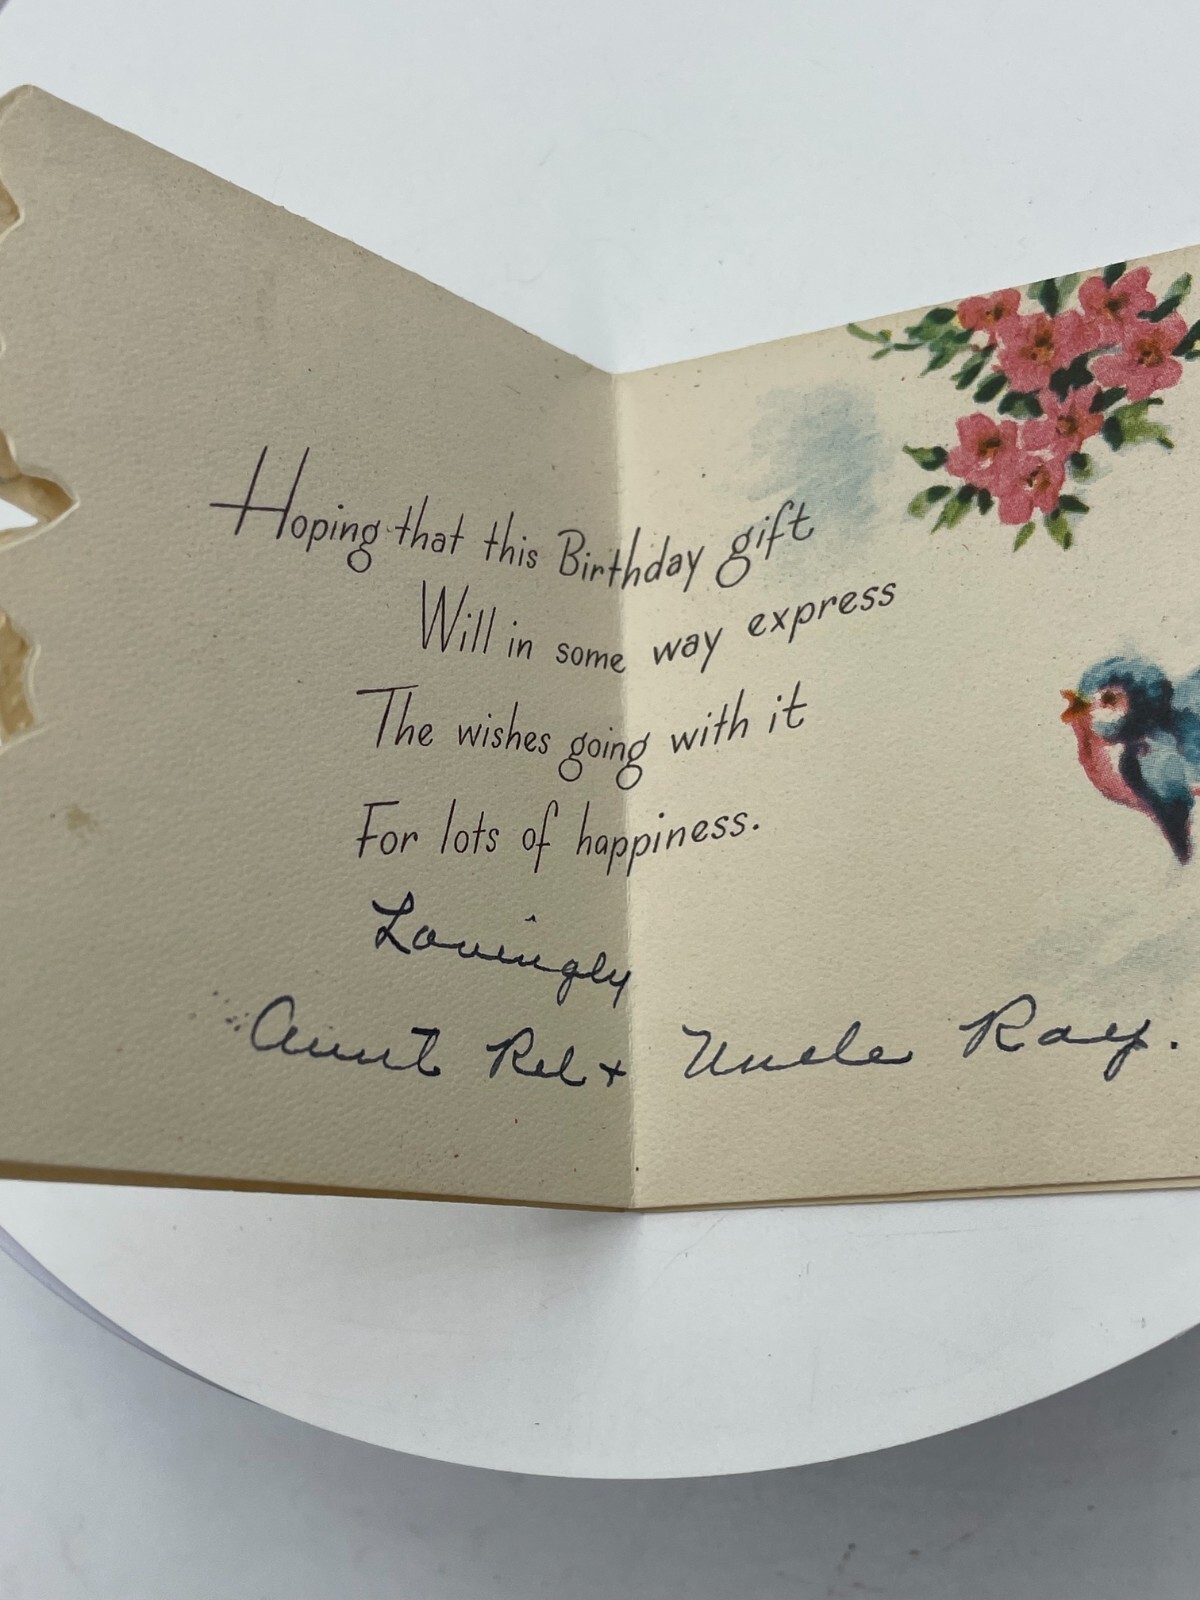 Hoping that this Birthday gift
Will in some way express
The wishes going with it
For lots of happiness.
Lovingly
Aunt Rel + Uncle Ray.